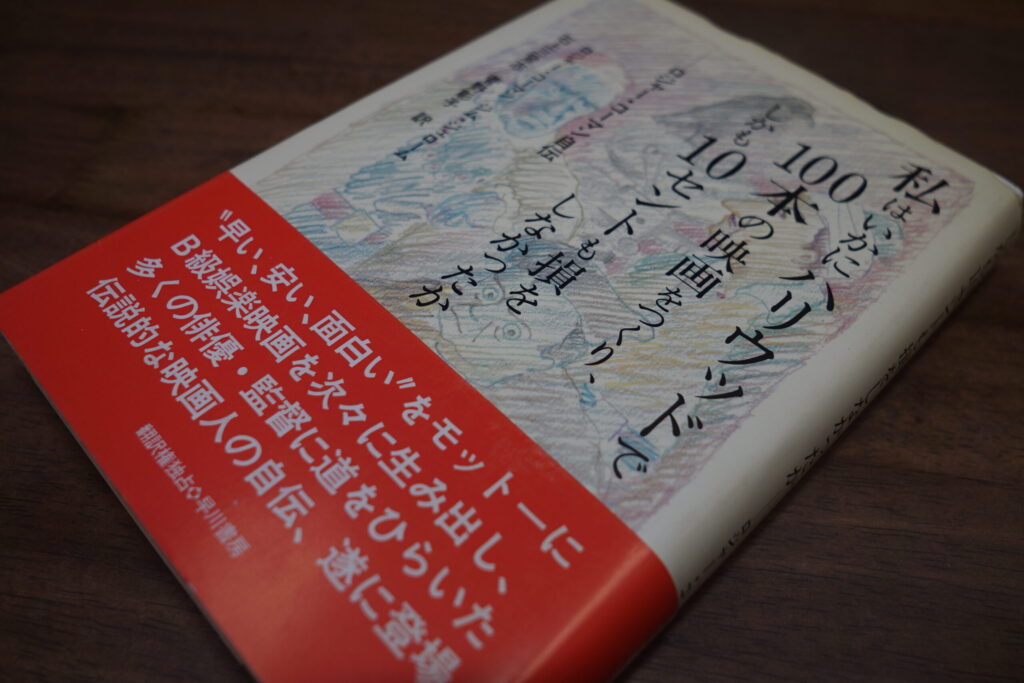 私はいかにハリウッドで
100本の映画をつくり、
しかも10セントも損を
しなかったか
ロジャー・コーマン自伝
ロジャー・コーマン
ジム・ジェローム
訳
〝早い、安い、面白い〟をモットーに
B級娯楽映画を次々に生み出し、
多くの俳優・監督に道をひらいた
伝説的な映画人の自伝、遂に登場
翻訳権独占◇早川書房